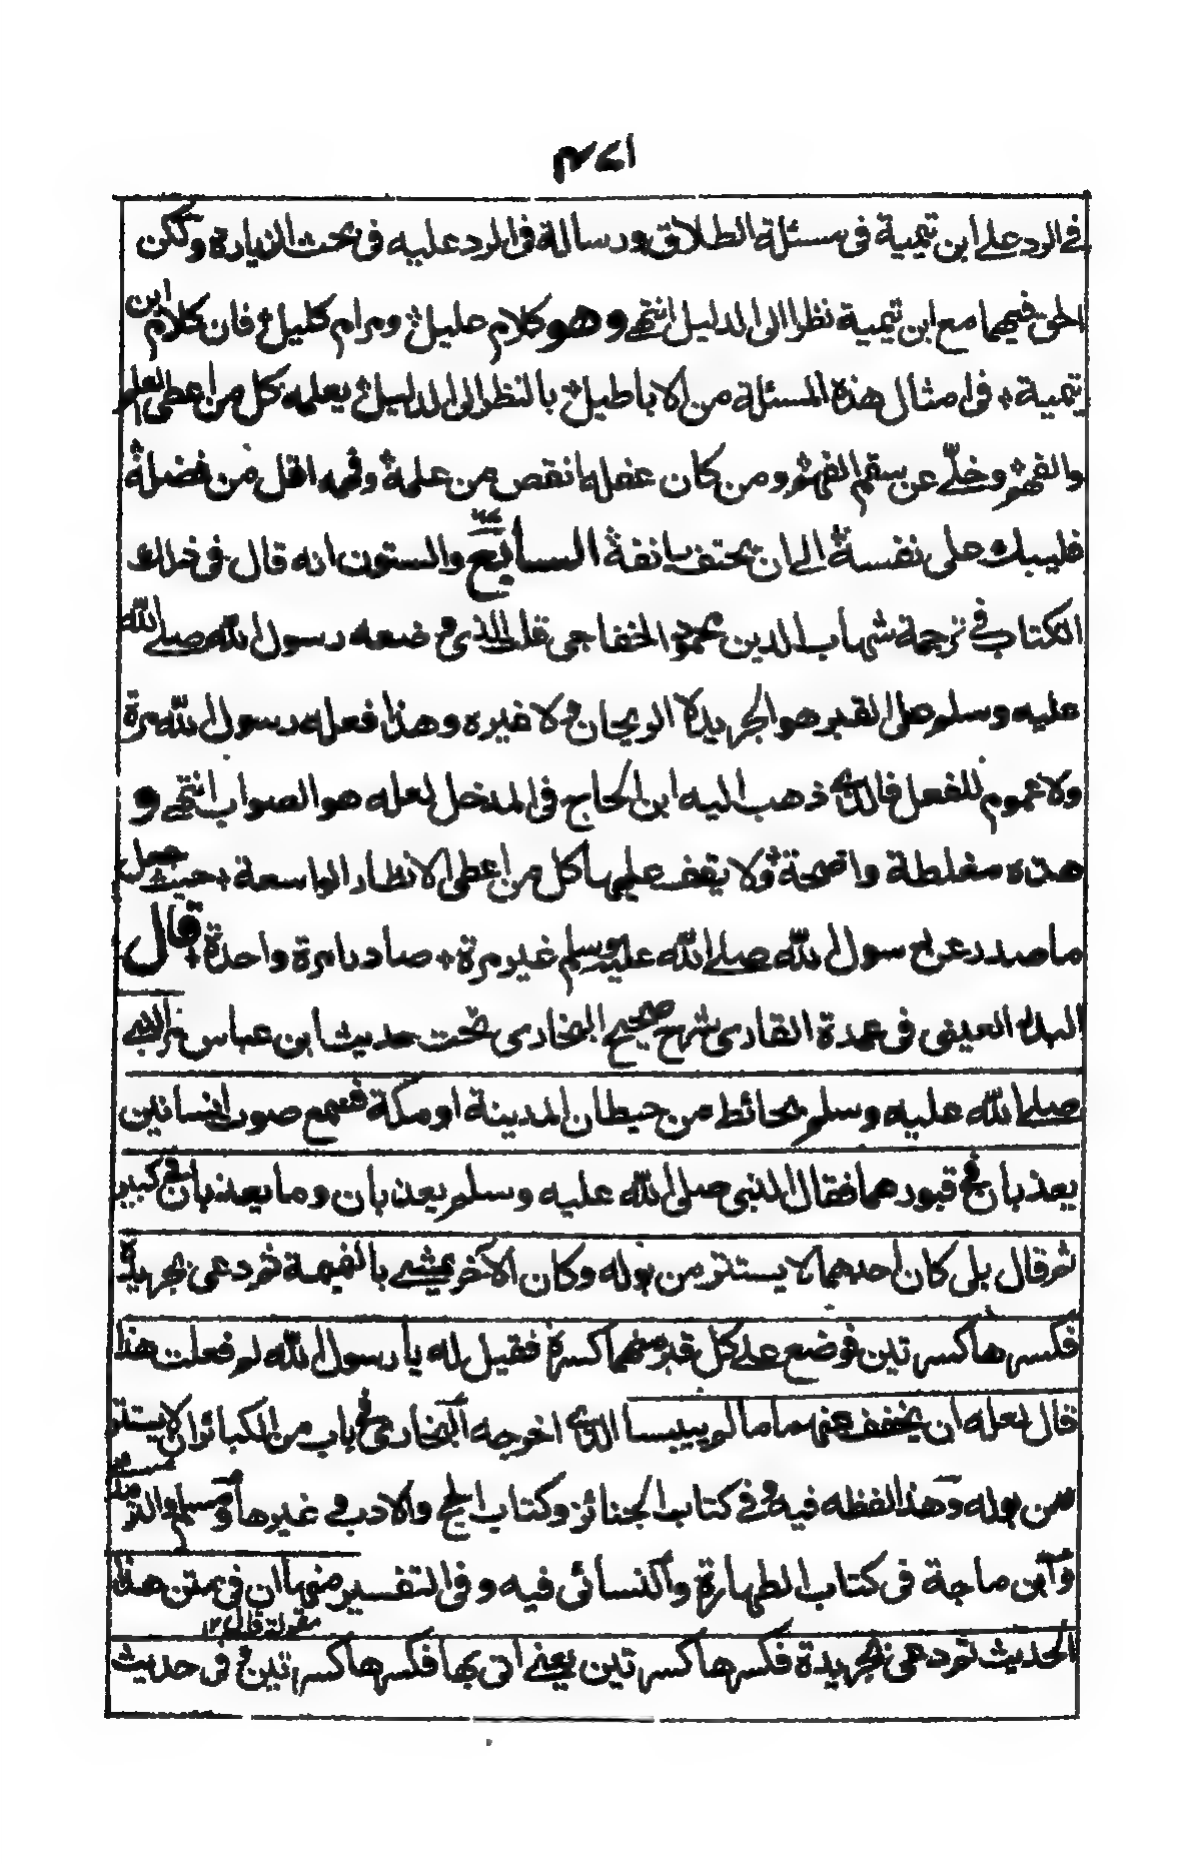 ٤٧١
في الرد على ابن تيمية فى مسئلة الطلاق ورسالة فى الرد عليه فى بحث الزيارة ولكن
الحق فيهما مع ابن تيمية نظرا الى الدليل انتهى وهو كلام عليل ومرام كليل فان كلام ابن
تيمية فى امثال هذه المسئلة من الاباطيل بالنظر الى الدليل يعلمه كل من اعطى العلم
والفهم وخلّى عن سقم الفهم ومن كان عقله انقص من علمه وفهمه اقل من فضله
فليبك على نفسه الى ان يحتف بانفه السابع والستون انه قال فى ذلك
الكتاب في ترجمة شهاب الدين محمود الخفاجى قلت الذى وضعه رسول الله صلى الله
عليه وسلم على القبر هو الجريد لا الريحان ولا غيره وهذا فعله رسول الله مرة
ولا عموم للفعل فالذى ذهب اليه ابن الحاج فى المدخل لعله هو الصواب انتهى و
هذه مغلطة واضحة ولا يقف عليها كل من اعطى الانظار الواسعة حيث جعل
ما صدر عن رسول الله صلى الله عليه وسلم غير مرة صادرا مرة واحدة قال
البدر العينى فى عمدة القارى شرح صحيح البخارى تحت حديث ابن عباس مر النبى
صلى الله عليه وسلم بحائط من حيطان المدينة او مكة فسمع صوت انسانين
يعذبان فى قبورهما فقال النبى صلى الله عليه وسلم يعذبان وما يعذبان فى كبير
ثم قال بلى كان احدهما لا يستتر من بوله وكان الآخر يمشى بالنميمة ثم دعى بجريدة
فكسرها كسرتين فوضع على كل قبر منهما كسرة فقيل له يا رسول الله لم فعلت هذا
قال لعله ان يخفف عنهما ما لم ييبسا الذى اخرجه البخارى فى باب من الكبائر ان لا يستتر
من بوله وهذا لفظه فيه وفى كتاب الجنائز وكتاب الحج والادب وفى غيرها ومسلم والترمذى
وابن ماجة فى كتاب الطهارة والنسائى فيه وفى التفسير منها ان فى متن هذا
مقولة قال ١٢
الحديث ثم دعى بجريدة فكسرها كسرتين يعنى اتى بها فكسرها كسرتين وفى حديث